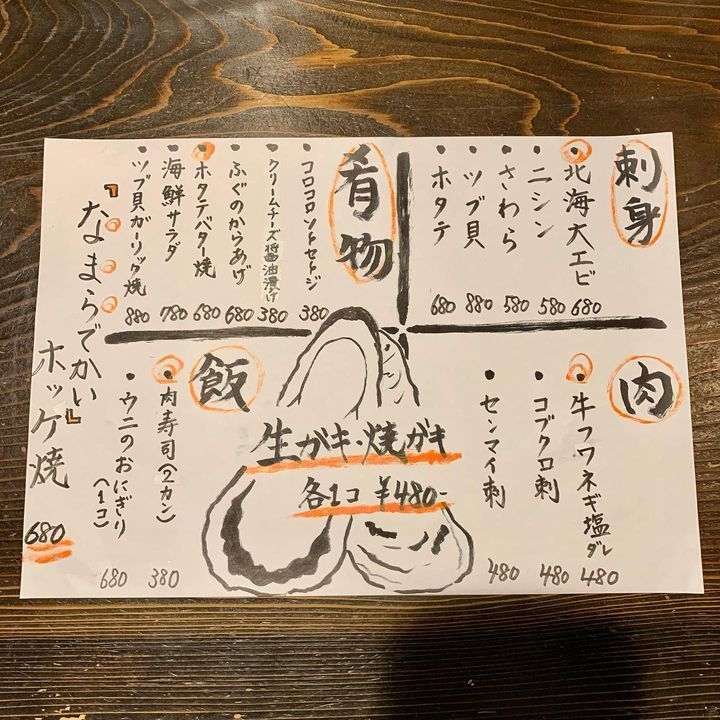 刺身
北海大エビ 680
ニシン 580
さわら 580
ツブ貝 880
ホタテ 680
肴物
コロコロソトセトジ 380
クリームチーズ醤油漬け 380
ふぐのからあげ 680
ホタテバター焼 680
海鮮サラダ 780
ツブ貝ガーリック焼 880
『なまらでかい』
ホッケ焼
680
肉
牛フワネギ塩ダレ 480
コブクロ刺 480
センマイ刺 480
生ガキ・焼ガキ
各1コ ¥480-
飯
肉寿司(2カン) 380
ウニのおにぎり(1コ) 680